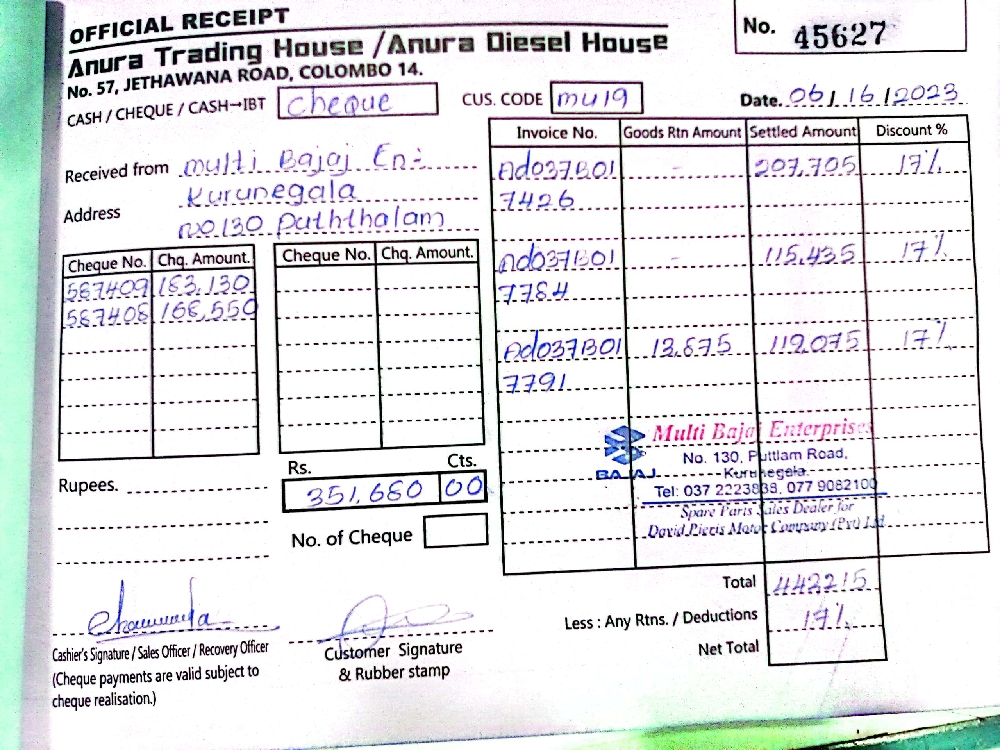 OFFICIAL RECEIPT
Anura Trading House /Anura Diesel House
No. 57, JETHAWANA ROAD, COLOMBO 14.
No. 45627
CASH / CHEQUE / CASH→IBT cheque
CUS. CODE mu19
Date. 06/16/2023
Received from multi Bajaj En:
Kurunegala
Address no.130 Puththalam
Cheque No. Chq. Amount.
587409 183,130
587408 168,550
Cheque No. Chq. Amount.
Invoice No. Goods Rtn Amount Settled Amount Discount %
Ad037B01 - 207,705 17%
7426
Ad037B01 - 115,435 17%
7784
Ad037B01 13,875 119,075 17%
7791
Multi Bajaj Enterprises
No. 130, Puttlam Road,
Kurunegala.
BAJAJ
Tel: 037 2223838, 077 9082100
Spare Parts Sales Dealer for
David Pieris Motor Company (Pvt) Ltd
Rupees.
Rs. Cts.
351,680 00
No. of Cheque
Total 442215
Less : Any Rtns. / Deductions 17%
Net Total
Cashier's Signature / Sales Officer / Recovery Officer
(Cheque payments are valid subject to
cheque realisation.)
Customer Signature
& Rubber stamp